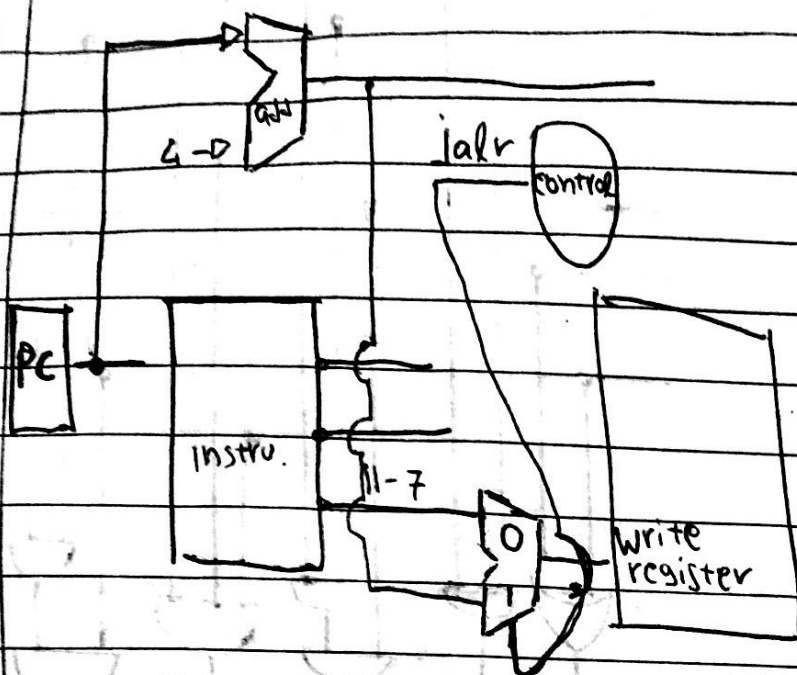 add
4
jalr
control
PC
Instru.
11-7
0
1
write
register